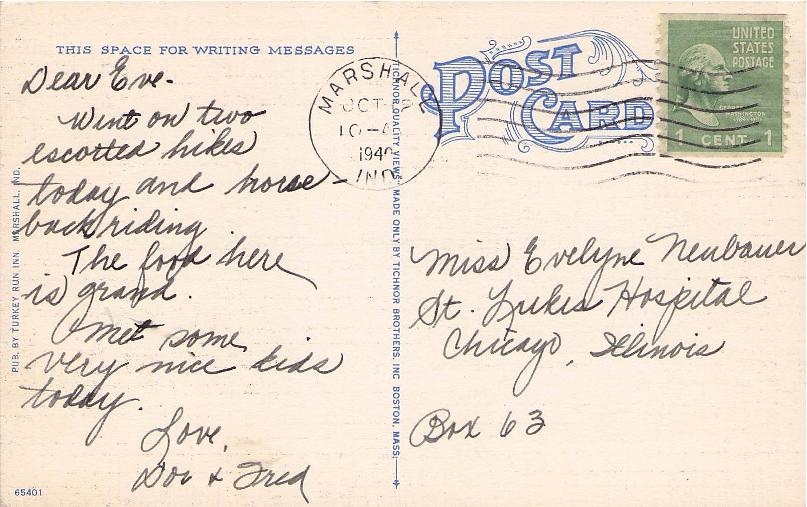 THIS SPACE FOR WRITING MESSAGES
Dear Eve-
Went on two
escotted hikes
today and horse-
back riding.
The food here
is grand.
Met some
very nice kids
today.
Love,
Dot & Fred
65401
PUB. BY TURKEY RUN INN. MARSHALL, IND.
TICHNOR QUALITY VIEWS. MADE ONLY BY TICHNOR BROTHERS, INC BOSTON, MASS.
POST
CARD
MARSHALL
OCT
10-A
1940
IND.
UNITED
STATES
POSTAGE
GEORGE
WASHINGTON
1 CENT 1
Miss Evelyne Neubauer
St. Lukes Hospital
Chicago, Illinois
Box 63